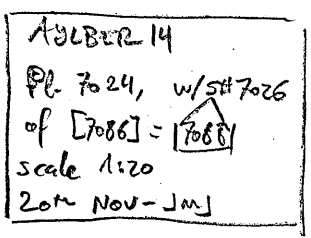 AYLBER 14
Pl. 7024, w/ SH 7026
of [7086] = 7088
scale 1:20
20th Nov - JMJ